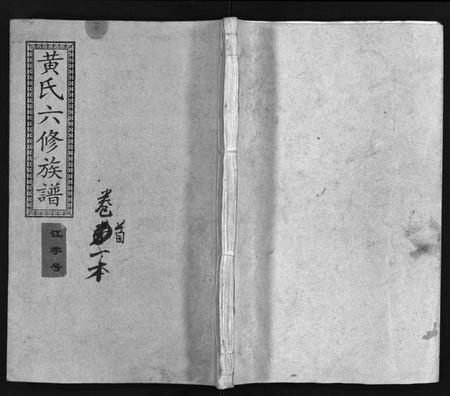 黃氏六修族譜
江字号
卷首
一本